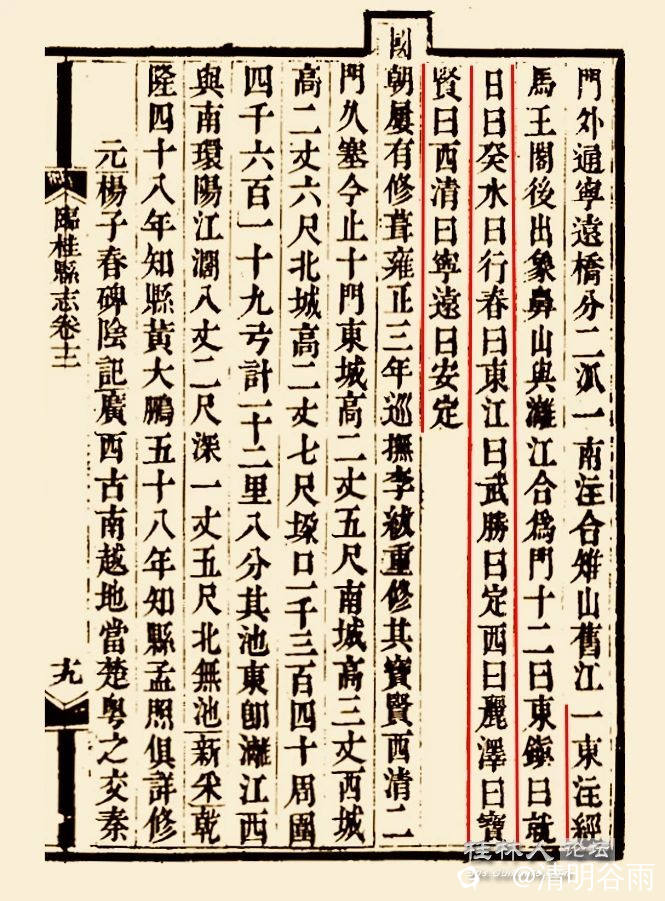 門外通寧遠橋分二派一南注合雉山舊江一東注經
馬王閣後出象鼻山與灕江合爲門十二曰東鎮曰就
日曰癸水曰行春曰東江曰武勝曰定西曰麗澤曰寶
賢曰西清曰寧遠曰安定
國朝屢有修葺雍正三年巡撫李紱重修其寶賢西清二
門久塞今止十門東城高二丈五尺南城高三丈西城
高二丈六尺北城高二丈七尺垜口一千三百四十周圍
四千六百一十九弓計一十二里八分其池東卽灕江西
與南環陽江濶八丈二尺深一丈五尺北無池新采乾
隆四十八年知縣黃大鵬五十八年知縣孟照俱詳修
元楊子春碑陰記廣西古南越地當楚粵之交秦
臨桂縣志卷十二
十九
桂林人论坛
@清明谷雨